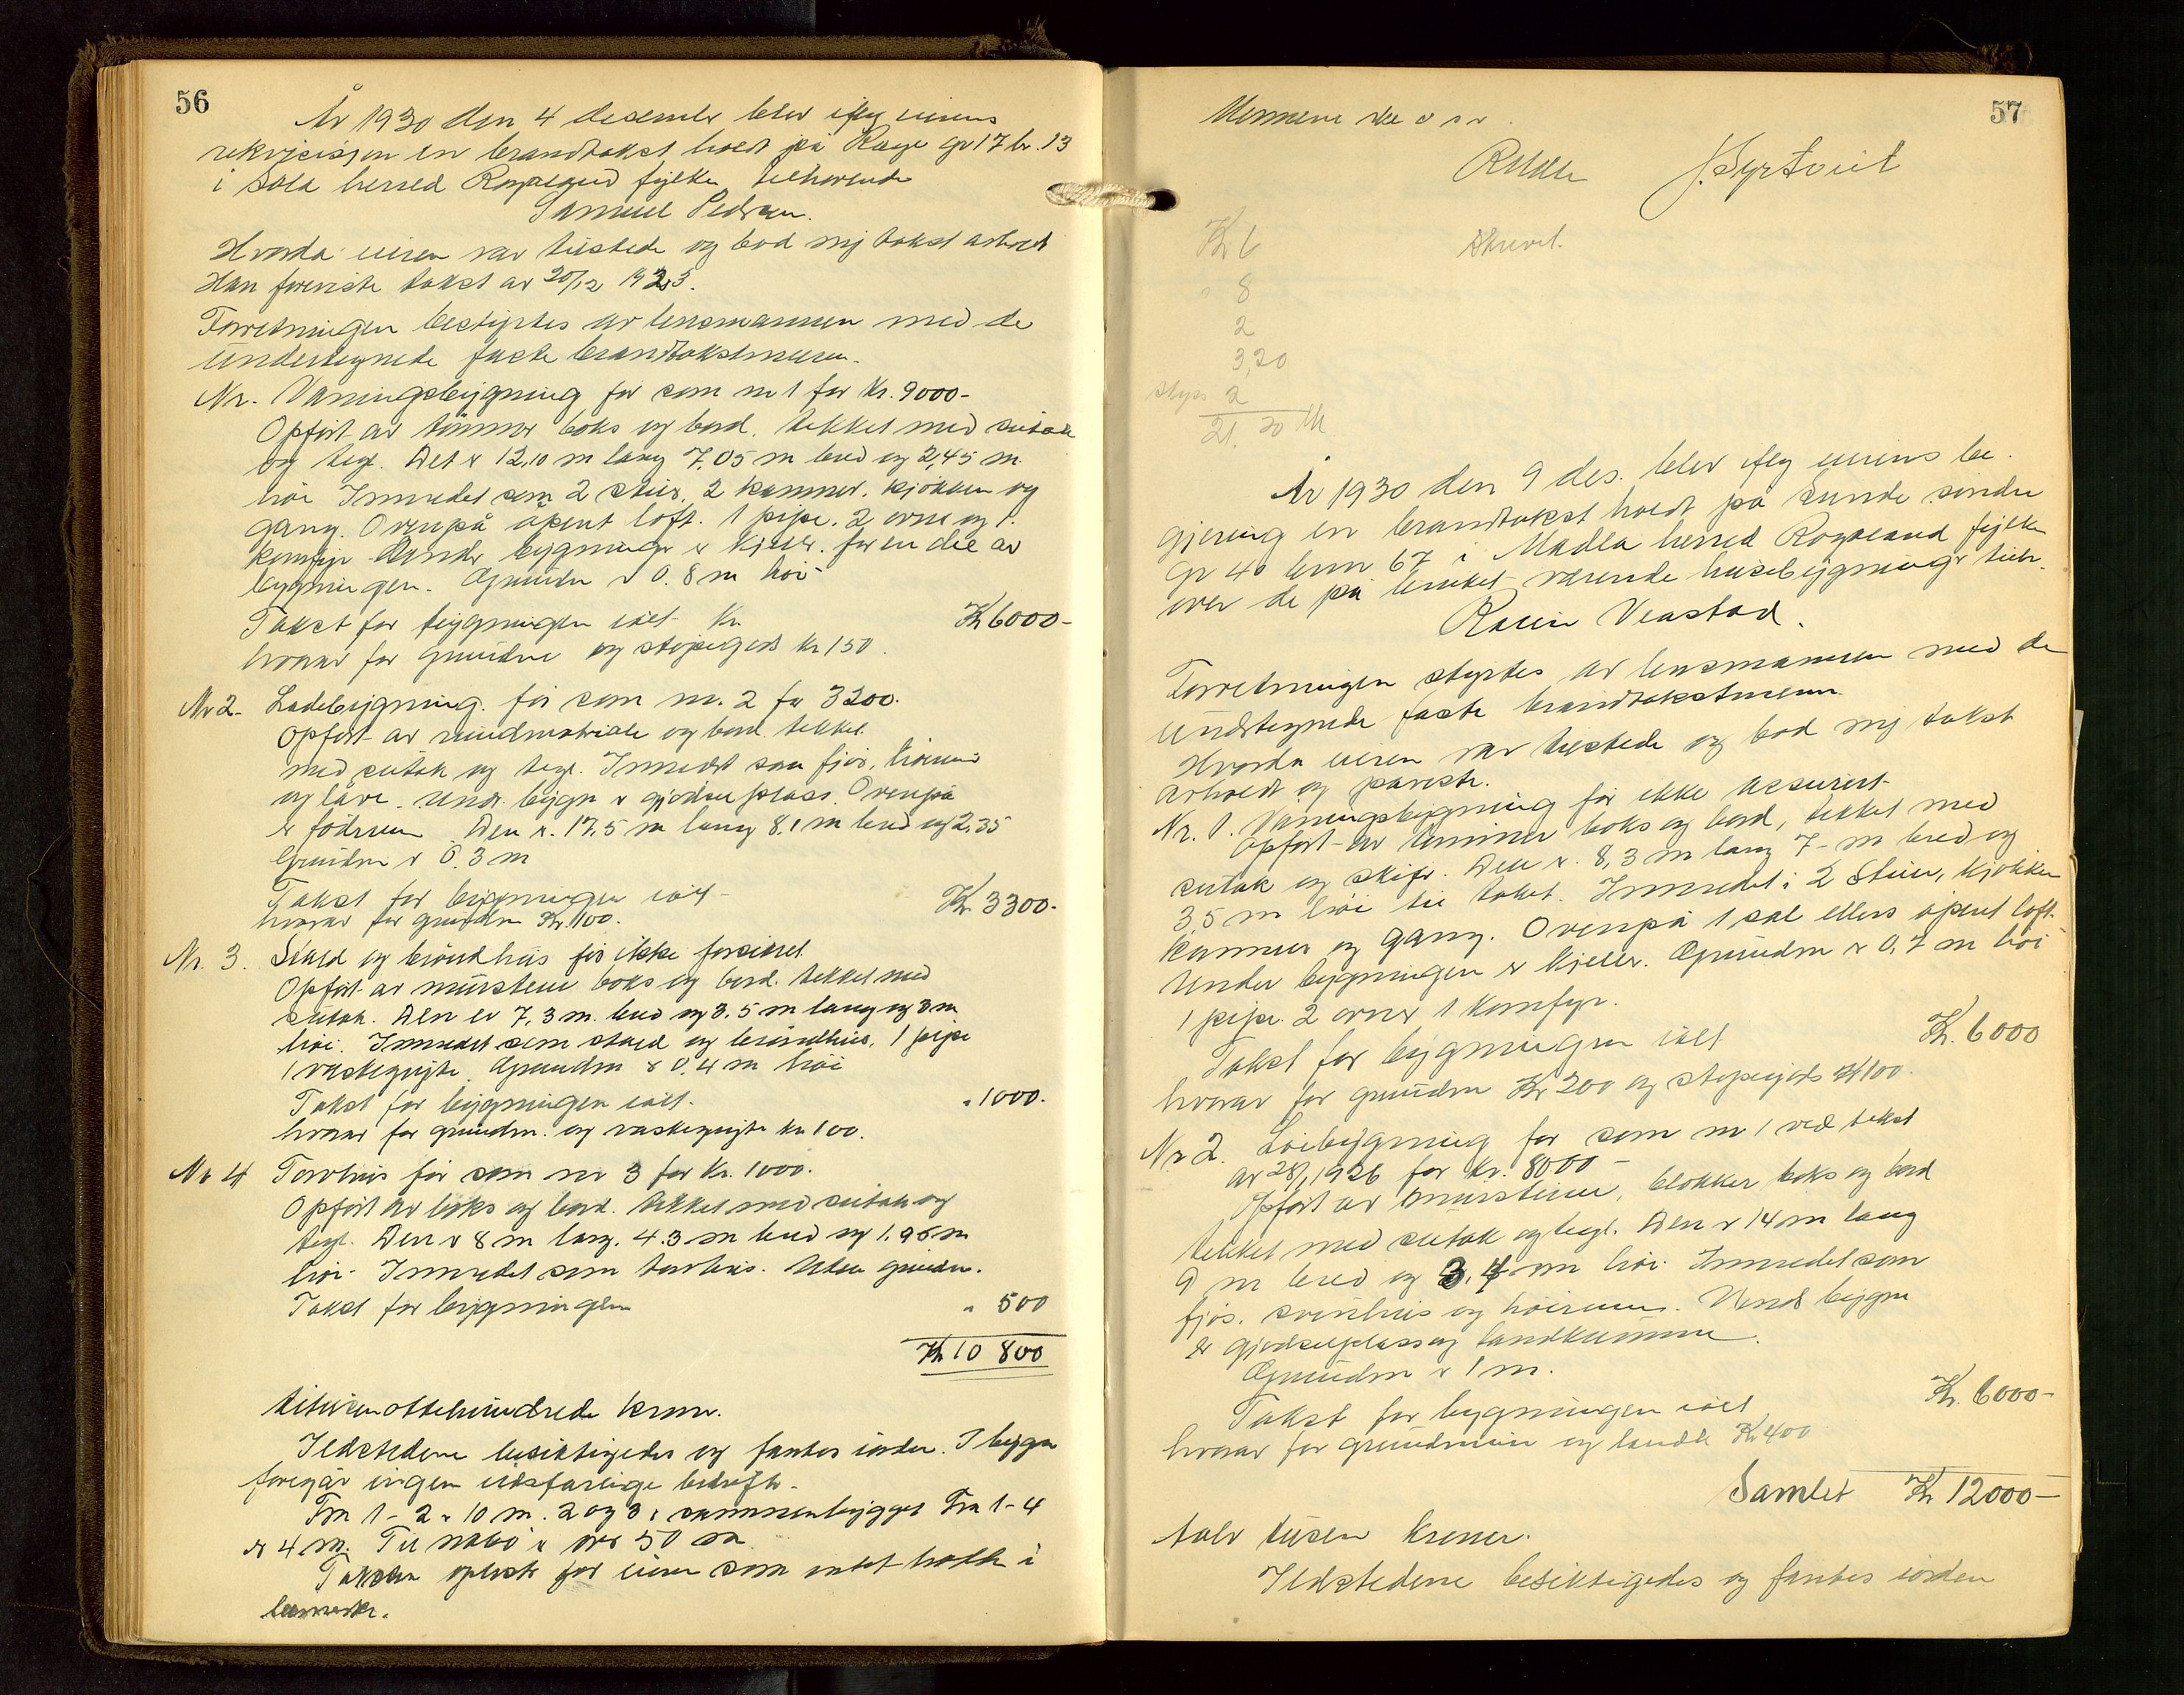 56
År 1930 den 4 desember blev efter eierens
rekvisisjon en brandtakst holdt på Rege gr 17 br. 13
i Sola herred Rogaland fylke tilhørende
Samuel Pedersen.
Hvorda eieren var tilstede og bad ny takst avholdt
Han foreviste takst av 20/12 1923.
Forretningen bestyrtes av lensmannen med de
undertegnede faste brandtakstmenn.
Nr. Våningsbygning før som nr 1 for Kr. 9000-
Opført av tømmer boks og bord. tekket med sutak
og tegl. Det er 12,10 m lang 7,05 m bred og 2,45 m
høi Innredet som 2 stuer, 2 kammer, kjøkken og
gang. Ovenpå åpent loft. 1 pipe. 2 ovne og 1
komfyr Under bygninger er kjeller for en del av
bygningen. Grunden er 0.8 m høi
Takst for bygningen ialt Kr. Kr 6000-
hvorav for grunden og støpegods kr 150.
Nr 2. Ladebygning. før som nr. 2 for 3200.
Opført av rundmateriale og bord tekket
med sutak og tegl. Innredet som fjøs, høirum
og låve. Under bygn er gjødselplass. Ovenpå
er fôdrum Den er 17,5 m lang 8,1 m bred og 2,35
Grunden er 0.3 m
Takst for bygningen ialt Kr 3300.
hvorav for grunden Kr. 100.
Nr. 3. Stald og brøndhus før ikke forsikret
Opført av murstene boks og bord. tekket med
sutak. Den er 7,3 m. bred og 3.5 m lang og 3 m
høi. Innredet som stald og brøndhus. 1 pipe
1 vaskegryte. Grunden er 0,4 m høi
Takst for bygningen ialt. " 1000.
hvorav for grunden og vaskegryte kr 100.
Nr 4 Torvhus før som nr 3 for Kr. 1000.
Opført av boks og bord. tekket med sutak og
tegl. Den er 8 m lang. 4.3 m bred og 1.95 m
høi. Innredet som torvhus. Uten grunden.
Takst for bygningen " 500
Kr 10 800
titusenottehundrede kroner.
Ildstedene besiktigedes og fantes iorden. I bygn
foregår ingen ildsfarlige bedrifter.
Fra 1 - 2 er 10 m. 2 og 3 er sammenbygget Fra 1 - 4
er 4 m. Til nabo er over 50 m
Taksten oplest for eieren som intet hadde i
bemerke.
57
J. Syrtveit
Kr 6
" 8
2
3,20
2
21. 20
År 1930 den 9 des. blev efter eierens be-
gjering en brandtakst holdt på Sunde søndre
gr 40 brnr 67 i Madla herred Rogaland fylke
over de på bruket værende husebygninger tilh.
Veastad.
Forretningen styrtes av lensmannen med de
undertegnede faste brandtakstmenn.
Hvorda eieren var tilstede og bad ny takst
avholdt og påviste.
Nr. 1. Våningsbygning før ikke assurert
Opført av tømmer boks og bord, tekket med
sutak og skifer. Den er 8,3 m lang 7- m bred og
3,5 m høi til taket. Innredet i 2 Stuer, kjøkken
kammer og gang. Ovenpå 1 sal ellers åpent loft.
Under bygningen er kjeller. Grunden er 0,7 m høi
1 pipe. 2 ovner 1 Komfyr.
Takst for bygningen ialt Kr. 6000
hvorav for grunden Kr 200 og støpegods Kr 100.
Nr 2. Løebygning før som nr 1 ved takst
av 28/1 1926 for Kr. 8000-
Opført av murstene, blokker boks og bord
tekket med sutak og tegl. Den er 14 m lang
9 m bred og 3,4 m høi. Innredet som
fjøs, svinehus og høirum. Under bygn
er gjødselplass og landkumme.
Grunden er 1 m.
Takst for bygningen ialt Kr. 6000-
hvorav for grundmur og landk Kr 400
Samlet Kr 12000-
tolv tusen kroner.
Ildstedene besiktigedes og fantes iorden